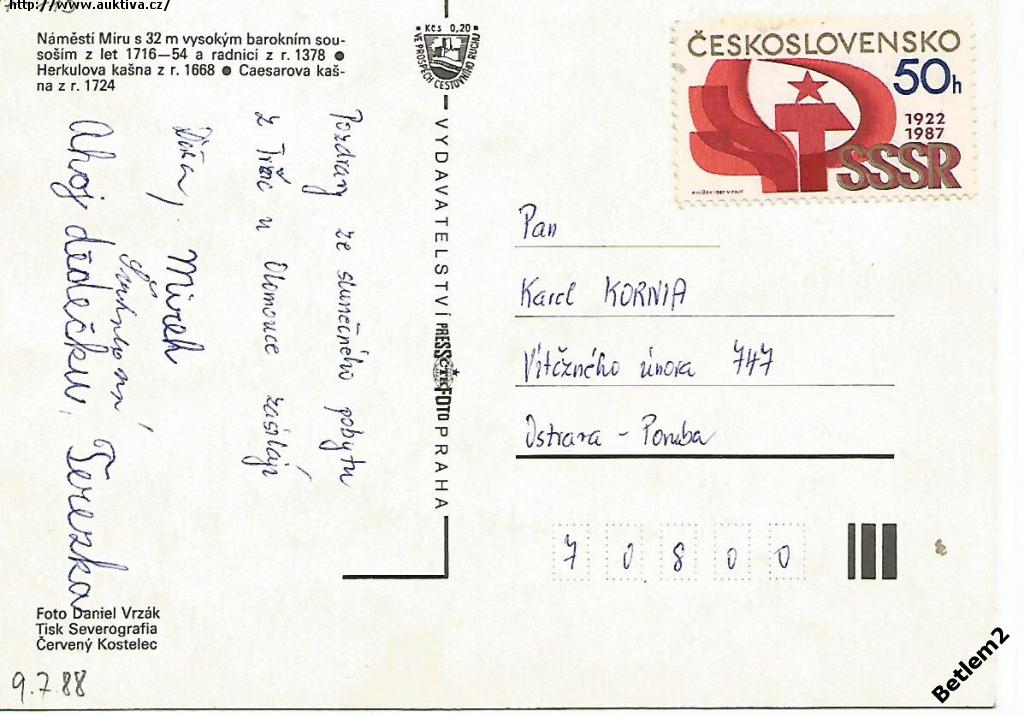 http://www.auktiva.cz/
Náměstí Míru s 32 m vysokým barokním sou-
soším z let 1716—54 a radnicí z r. 1378 ●
Herkulova kašna z r. 1668 ● Caesarova kaš-
na z r. 1724
Kčs 0,20
VE PROSPĚCH CESTOVNÍHO RUCHU
ČESKOSLOVENSKO
50h
1922
1987
SSSR
Pozdravy ze slunečného pobytu
z Tršic u Olomouce zasílají
Mirek
Ahoj dědečku, Terezka
VYDAVATELSTVÍ PRESSFOTO PRAHA
ČTK
Pan
Karel KORNIA
Vítězného února 747
Ostrava - Poruba
7 0 8 0 0
Foto Daniel Vrzák
Tisk Severografia
Červený Kostelec
9.7.88
Betlem2